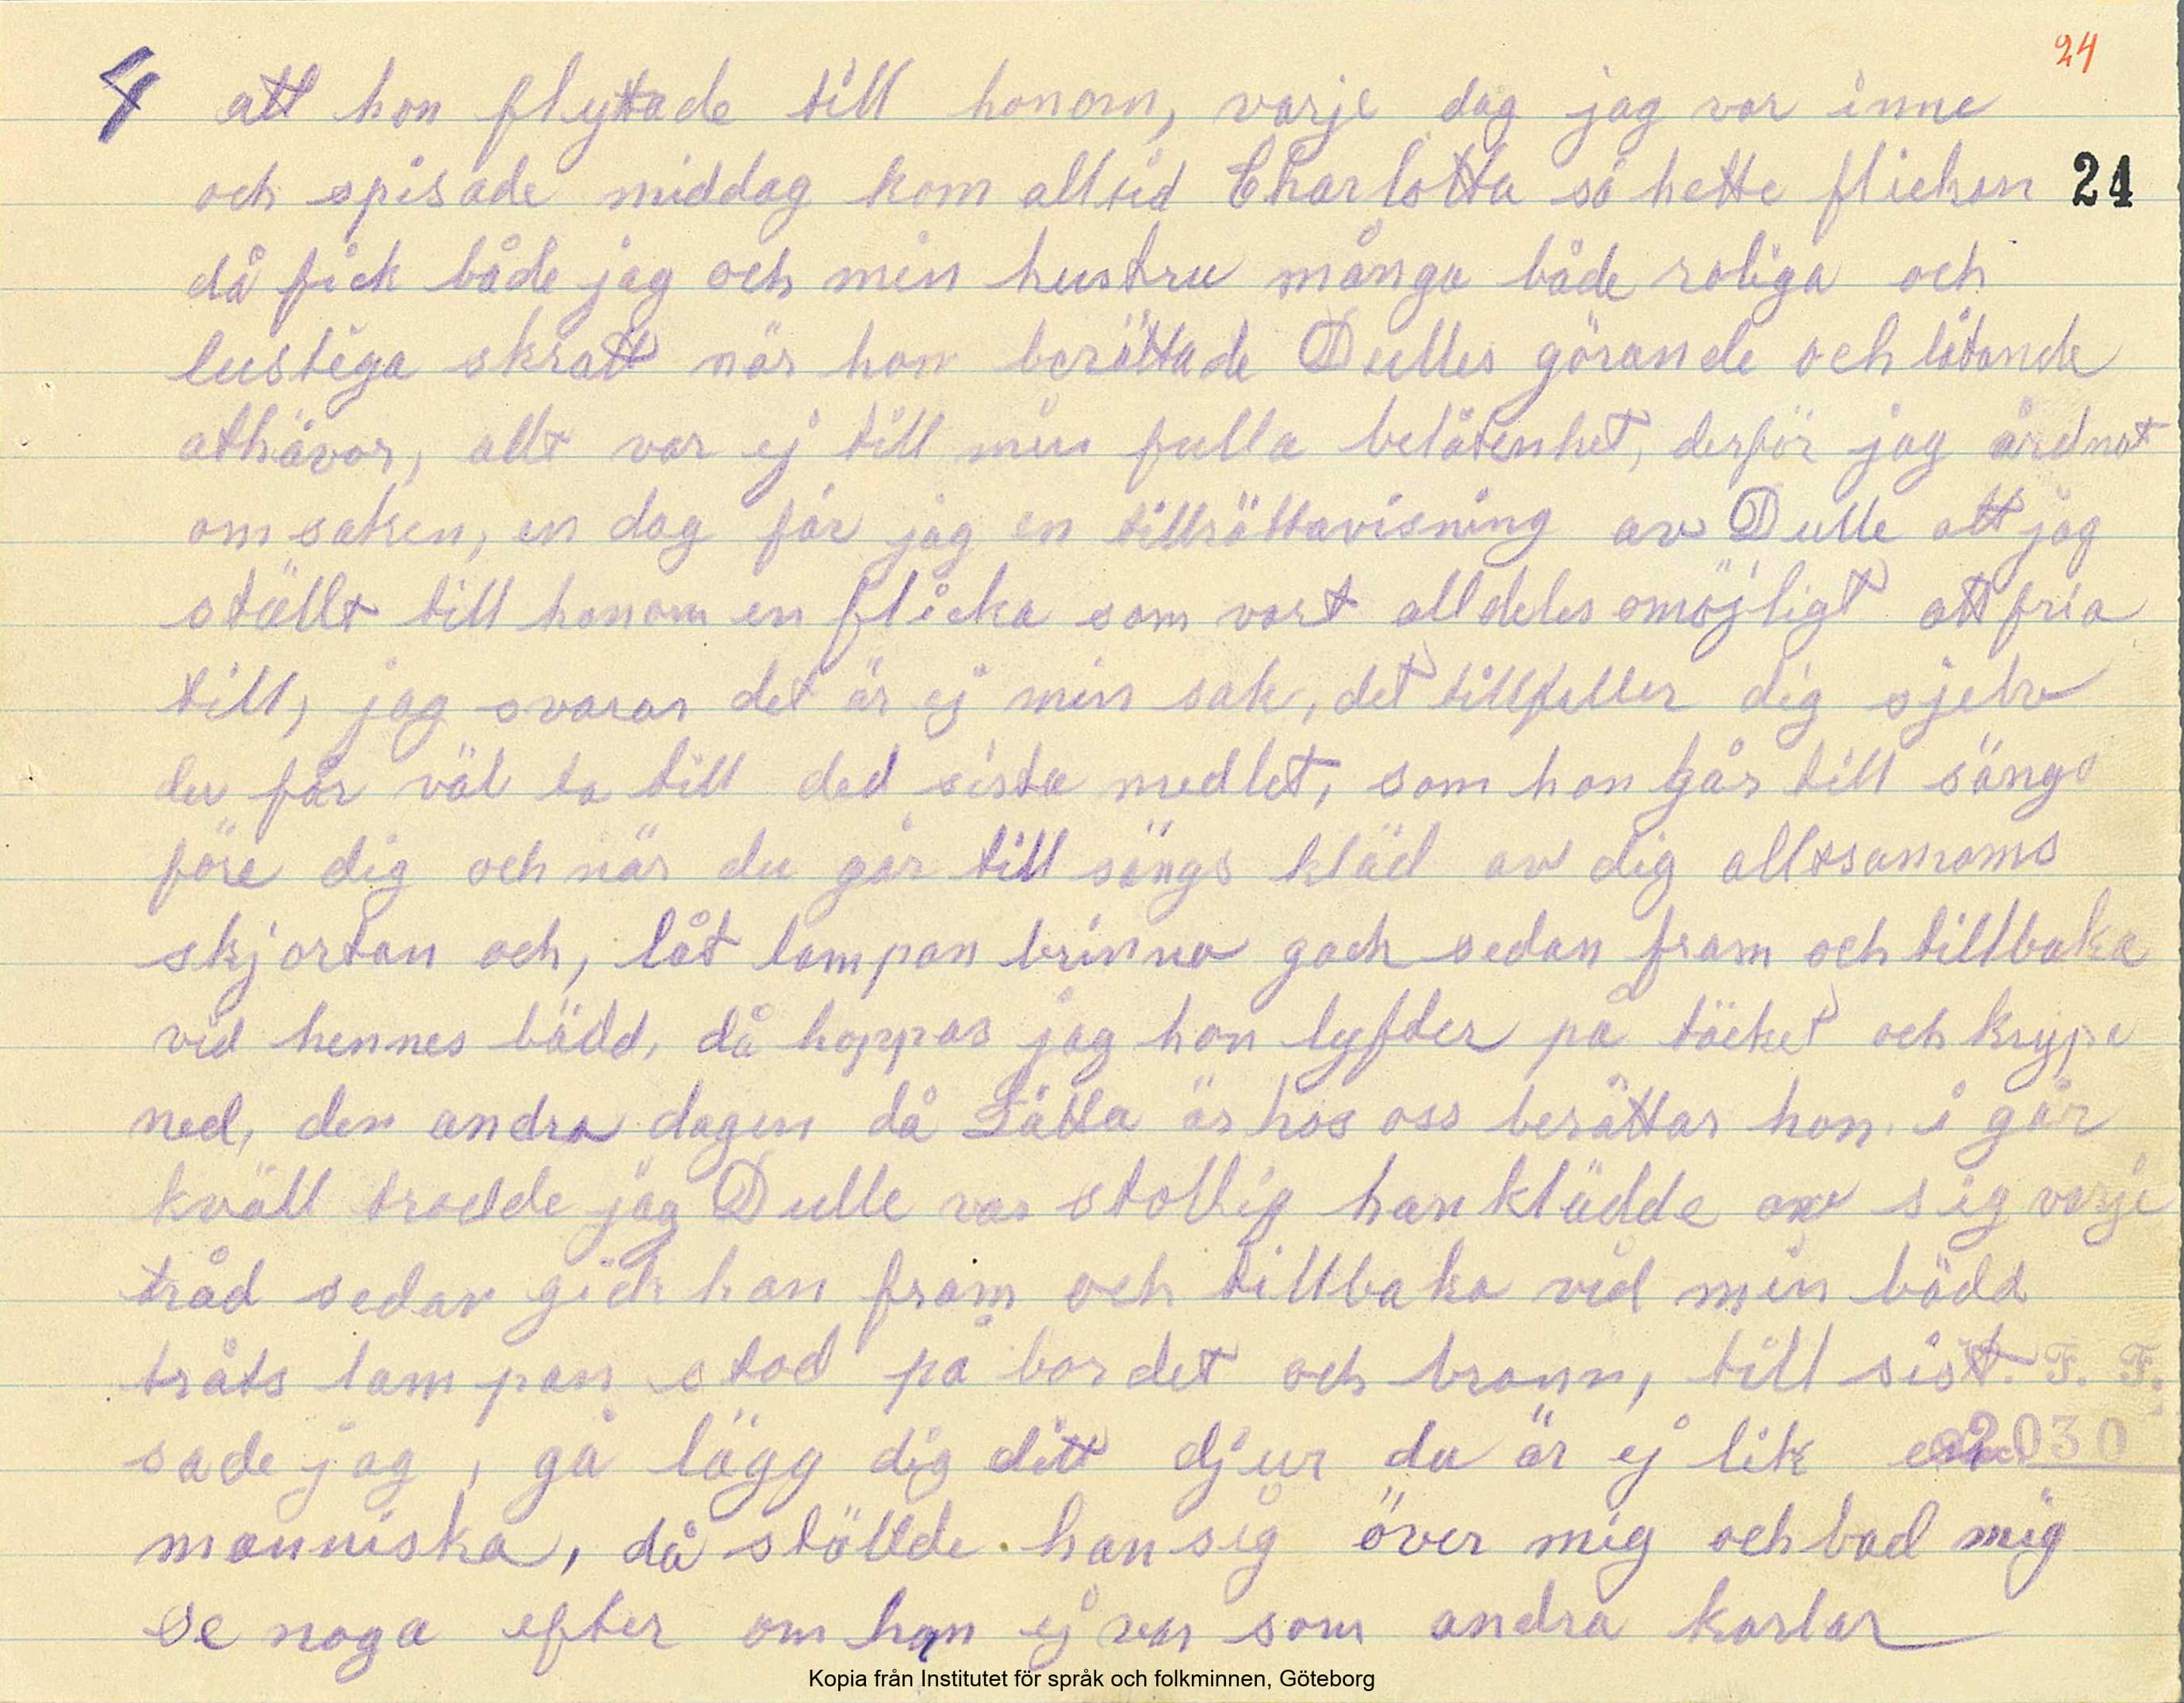 24
4 att hon flyttade till honom, varje dag jag var inne
och spisade middag kom alltid Charlotta så hette flickan 24
då fick både jag och min hustru många både roliga och
lustiga skratt när hon berättade Dulles görande och låtande
athävor, allt var ej till min fulla belåtenhet, derför jag årdnat
om saken, en dag får jag en tillrättavisning av Dulle att jag
ställt till honom en flicka som vart alldeles omöjligt att fria
till, jag svarar det är ej min sak, det tillfaller dig sjelv
du får väl ta till ded sista medlet, som hon går till sängs
före dig och när du går till sängs kläd av dig alltsammans
skjortan och, låt lampan brinna gack sedan fram och tillbaka
vid hennes bädd, då hoppas jag hon lyfter på täcket och krype
ned, den andra dagen då Låtta är hos oss berättar hon i går
kväll trodde jag Dulle var stollig han klädde av sig varje
tråd sedan gick han fram och tillbaka vid min bädd
tråts lampan stod på bordet och brann, till sist. F. F.
sade jag, gå lägg dig ditt djur du är ej lik en 2030
manniska, då ställde han sig över mig och bad mig
se noga efter om han ej var som andra karlar
Kopia från Institutet för språk och folkminnen, Göteborg